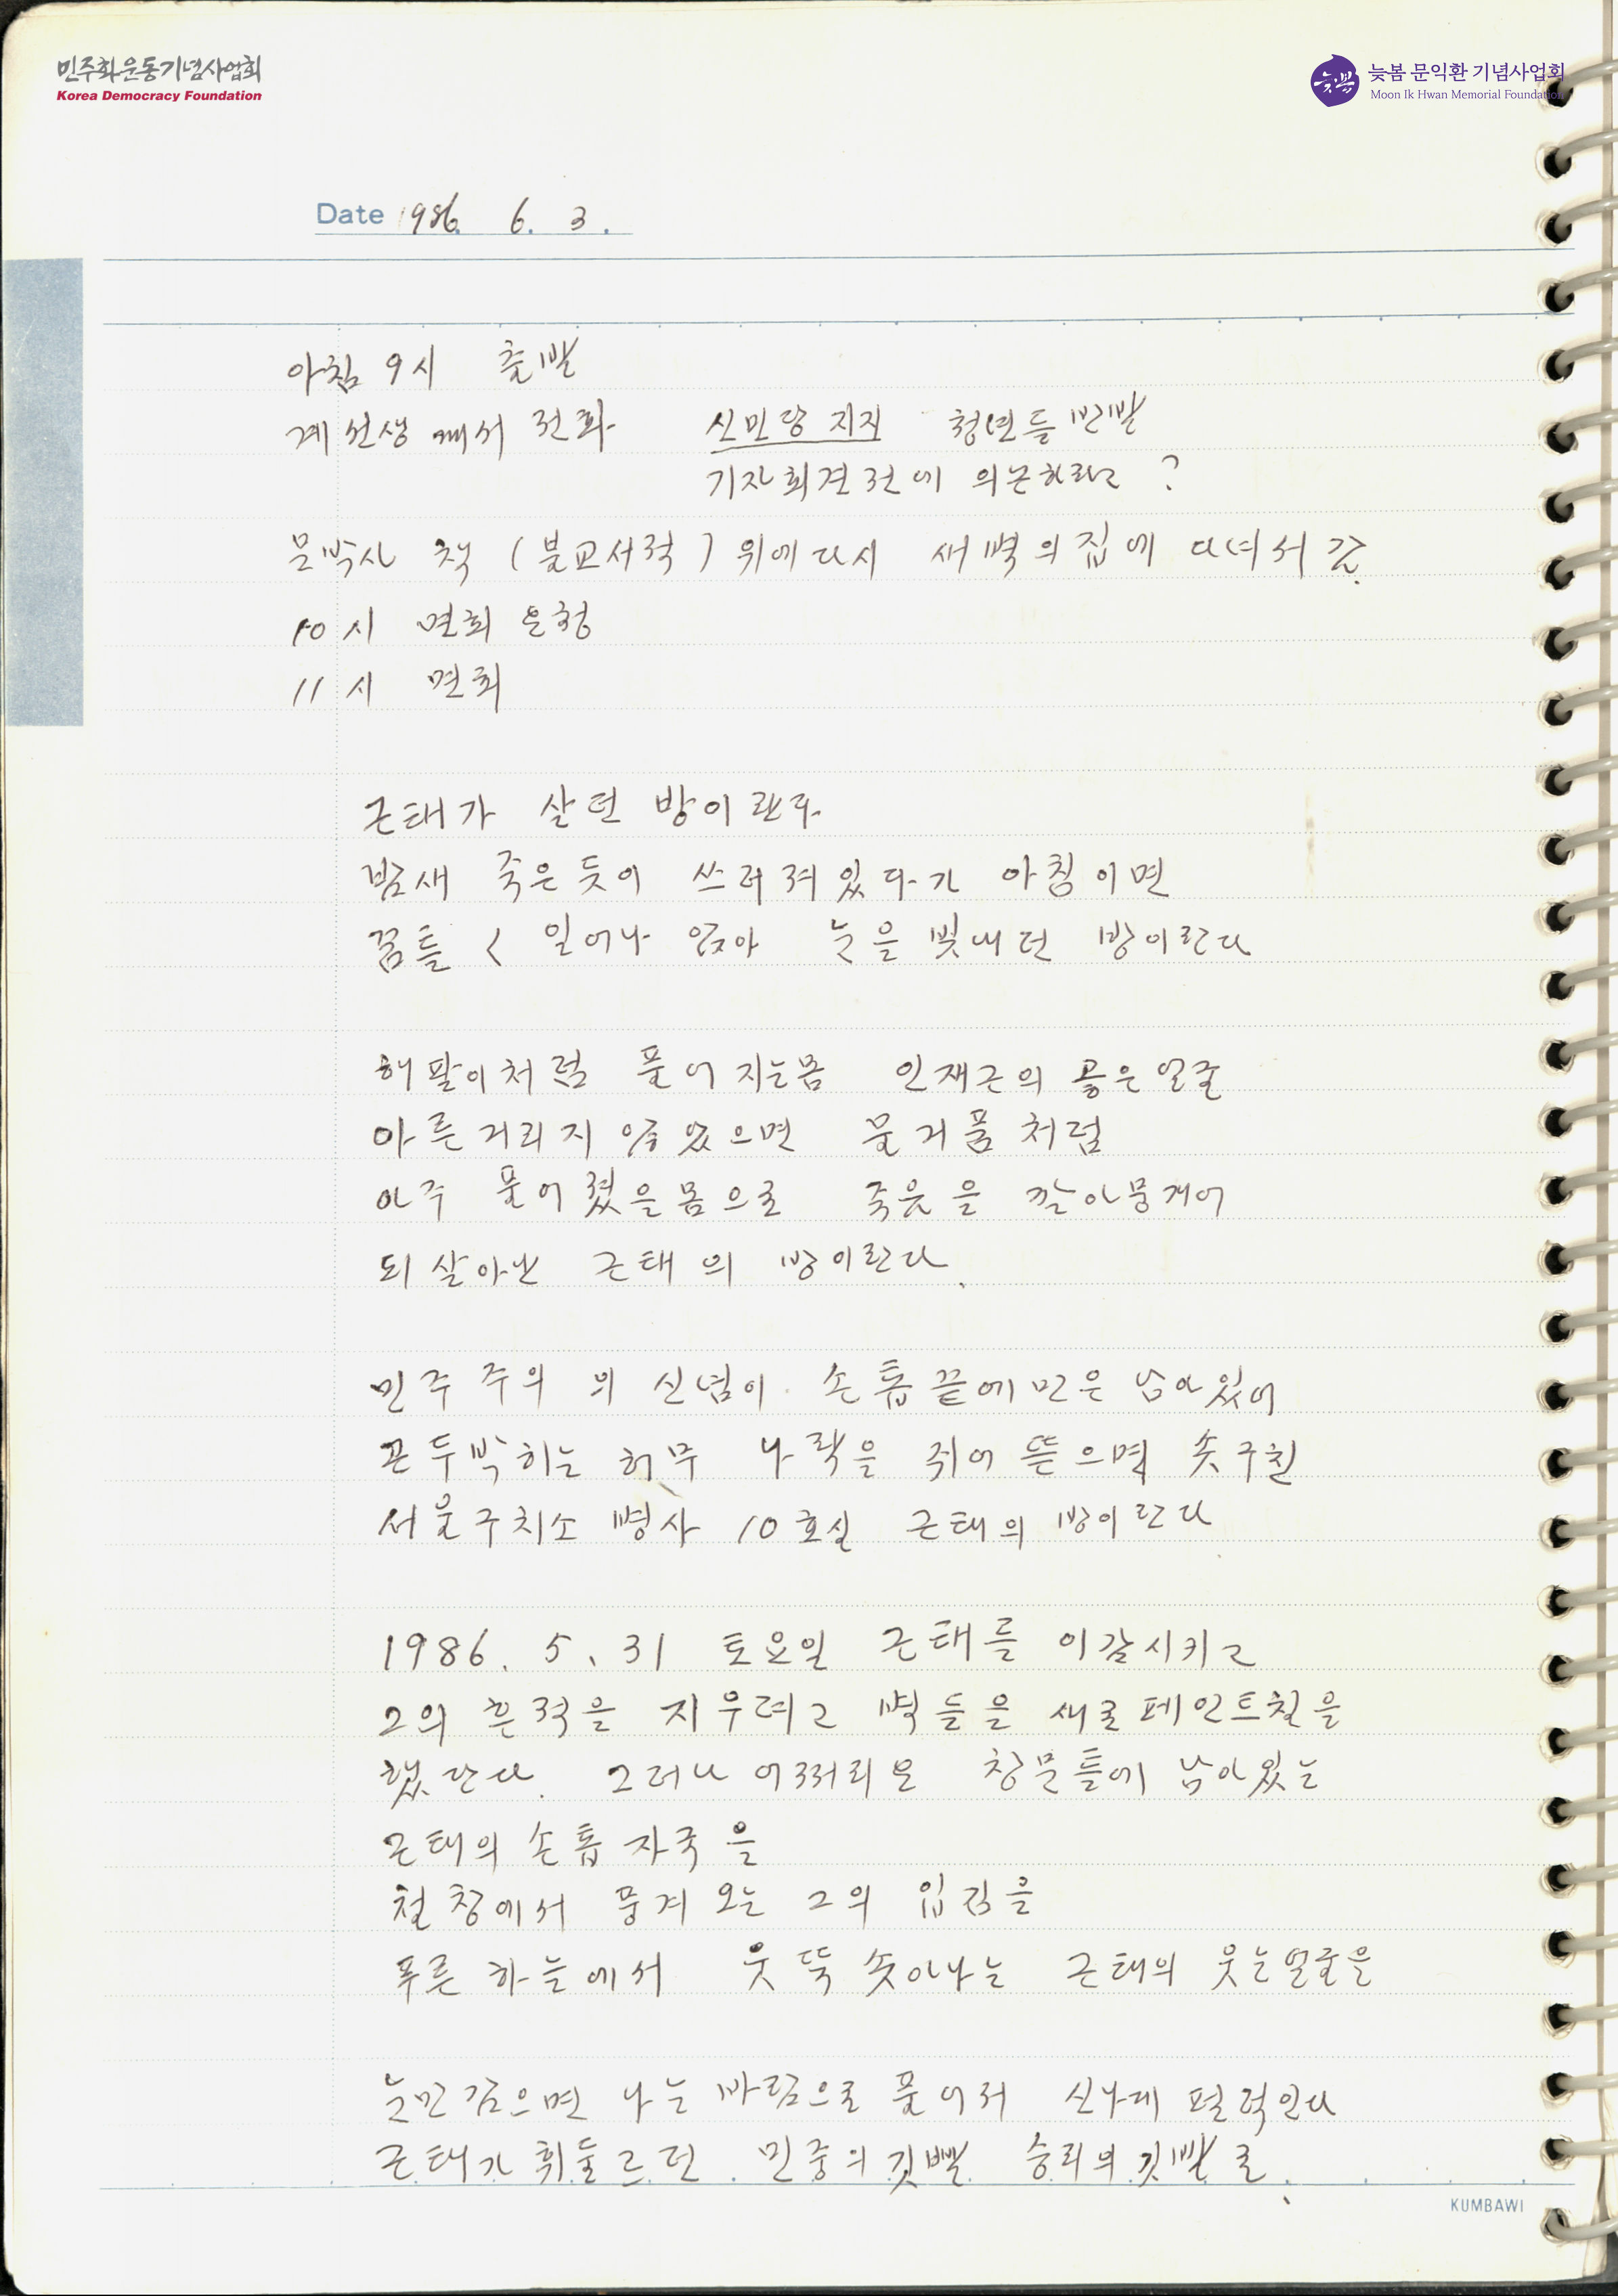 민주화운동기념사업회
Korea Democracy Foundation
늦봄
늦봄 문익환 기념사업회
Moon Ik Hwan Memorial Foundation
Date 1986. 6. 3.
아침 9시 출발
계선생께서 전화 신민당 지지 청년들 반발
기자회견전에 의논하라고?
문박사 책 (불교서적) 위에다시 새벽의집에 다녀서 감.
10시 면회 신청
11시 면회
근태가 살던 방이란다.
밤새 죽은듯이 쓰러져있다가 아침이면
꿈틀 < 일어나 앉아 눈을 빛내던 방이란다
해팔이처럼 풀어지는몸 인재근의 곻은얼굴
아른거리지 않았으면 물거품처럼
아주 풀어졌을몸으로 죽음을 깔아뭉개어
되살아난 근태의 방이란다.
민주주의의 신념이 손톱끝에만은 남아있어
곤두박히는 허무 나락을 쥐어뜯으며 솟구친
서울구치소 병사 10호실 근태의 방이란다
1986. 5. 31 토요일 근태를 이감시키고
그의 흔적을 지우려고 벽들을 새로 페인트칠을
했단다. 그러나 어쩌리오 창문틀에 남아있는
근태의 손톱자국을
철창에서 풍겨오는 그의 입김을
푸른 하늘에서 웃뚝 솟아나는 근태의 웃는얼굴을
눈만감으면 나는 바람으로 풀어져 신나게 펄럭인다
근태가 휘둘르던 민중의 깃빨 승리의 깃빨로.
KUMBAWI